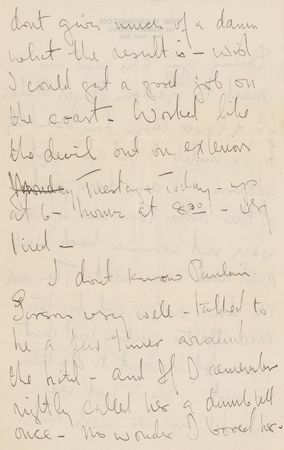 dont give much of a damn
what the result is - wish
I could get a good job on
the coast - Worked like
the devil out on exteriors
Monday Tuesday + Today - up
at 6 - home at 8:30 - very
tired -
I dont know Pauline
very well - talked to
her a few times around
the hotel - and if I remember
rightly called her a dumbbell
once - no wonder I bored her -